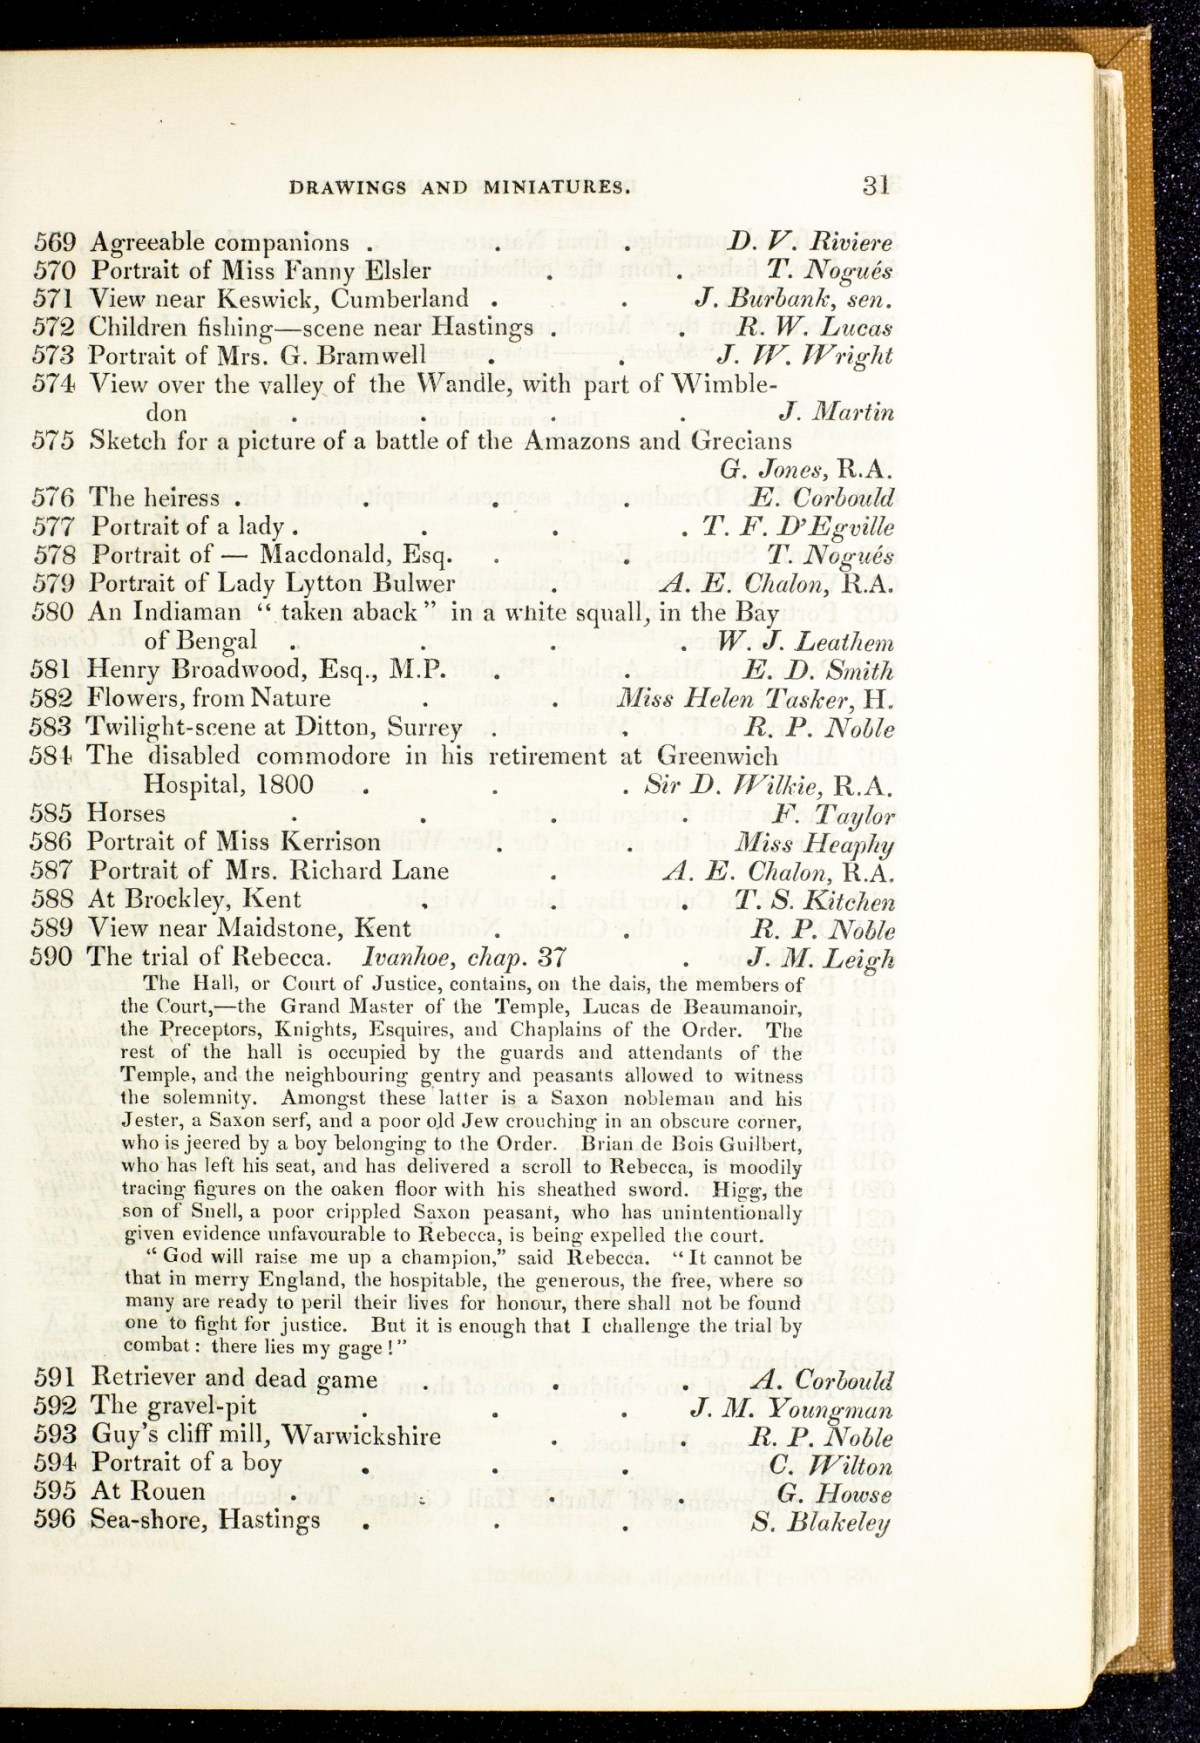 DRAWINGS AND MINIATURES. 31
569 Agreeable companions . . . D. V. Riviere
570 Portrait of Miss Fanny Elsler . . T. Nogués
571 View near Keswick, Cumberland . . J. Burbank, sen.
572 Children fishing—scene near Hastings . . R. W. Lucas
573 Portrait of Mrs. G. Bramwell . . J. W. Wright
574 View over the valley of the Wandle, with part of Wimble-
don . . . . J. Martin
575 Sketch for a picture of a battle of the Amazons and Grecians
G. Jones, R.A.
576 The heiress . . . . E. Corbould
577 Portrait of a lady . . . . T. F. D'Egville
578 Portrait of — Macdonald, Esq. . . T. Nogués
579 Portrait of Lady Lytton Bulwer . A. E. Chalon, R.A.
580 An Indiaman “ taken aback ” in a white squall, in the Bay
of Bengal . . . . W. J. Leathem
581 Henry Broadwood, Esq., M.P. . . E. D. Smith
582 Flowers, from Nature . . Miss Helen Tasker, H.
583 Twilight-scene at Ditton, Surrey . . R. P. Noble
584 The disabled commodore in his retirement at Greenwich
Hospital, 1800 . . . Sir D. Wilkie, R.A.
585 Horses . . . F. Taylor
586 Portrait of Miss Kerrison . . Miss Heaphy
587 Portrait of Mrs. Richard Lane . A. E. Chalon, R.A.
588 At Brockley, Kent . . . T. S. Kitchen
589 View near Maidstone, Kent . . R. P. Noble
590 The trial of Rebecca. Ivanhoe, chap. 37 . J. M. Leigh
The Hall, or Court of Justice, contains, on the dais, the members of
the Court,—the Grand Master of the Temple, Lucas de Beaumanoir,
the Preceptors, Knights, Esquires, and Chaplains of the Order. The
rest of the hall is occupied by the guards and attendants of the
Temple, and the neighbouring gentry and peasants allowed to witness
the solemnity. Amongst these latter is a Saxon nobleman and his
Jester, a Saxon serf, and a poor old Jew crouching in an obscure corner,
who is jeered by a boy belonging to the Order. Brian de Bois Guilbert,
who has left his seat, and has delivered a scroll to Rebecca, is moodily
tracing figures on the oaken floor with his sheathed sword. Higg, the
son of Snell, a poor crippled Saxon peasant, who has unintentionally
given evidence unfavourable to Rebecca, is being expelled the court.
“ God will raise me up a champion,” said Rebecca. “ It cannot be
that in merry England, the hospitable, the generous, the free, where so
many are ready to peril their lives for honour, there shall not be found
one to fight for justice. But it is enough that I challenge the trial by
combat : there lies my gage ! ”
591 Retriever and dead game . . . A. Corbould
592 The gravel-pit . . . J. M. Youngman
593 Guy's cliff mill, Warwickshire . . R. P. Noble
594 Portrait of a boy . . . C. Wilton
595 At Rouen . . . . G. Howse
596 Sea-shore, Hastings . . . S. Blakeley